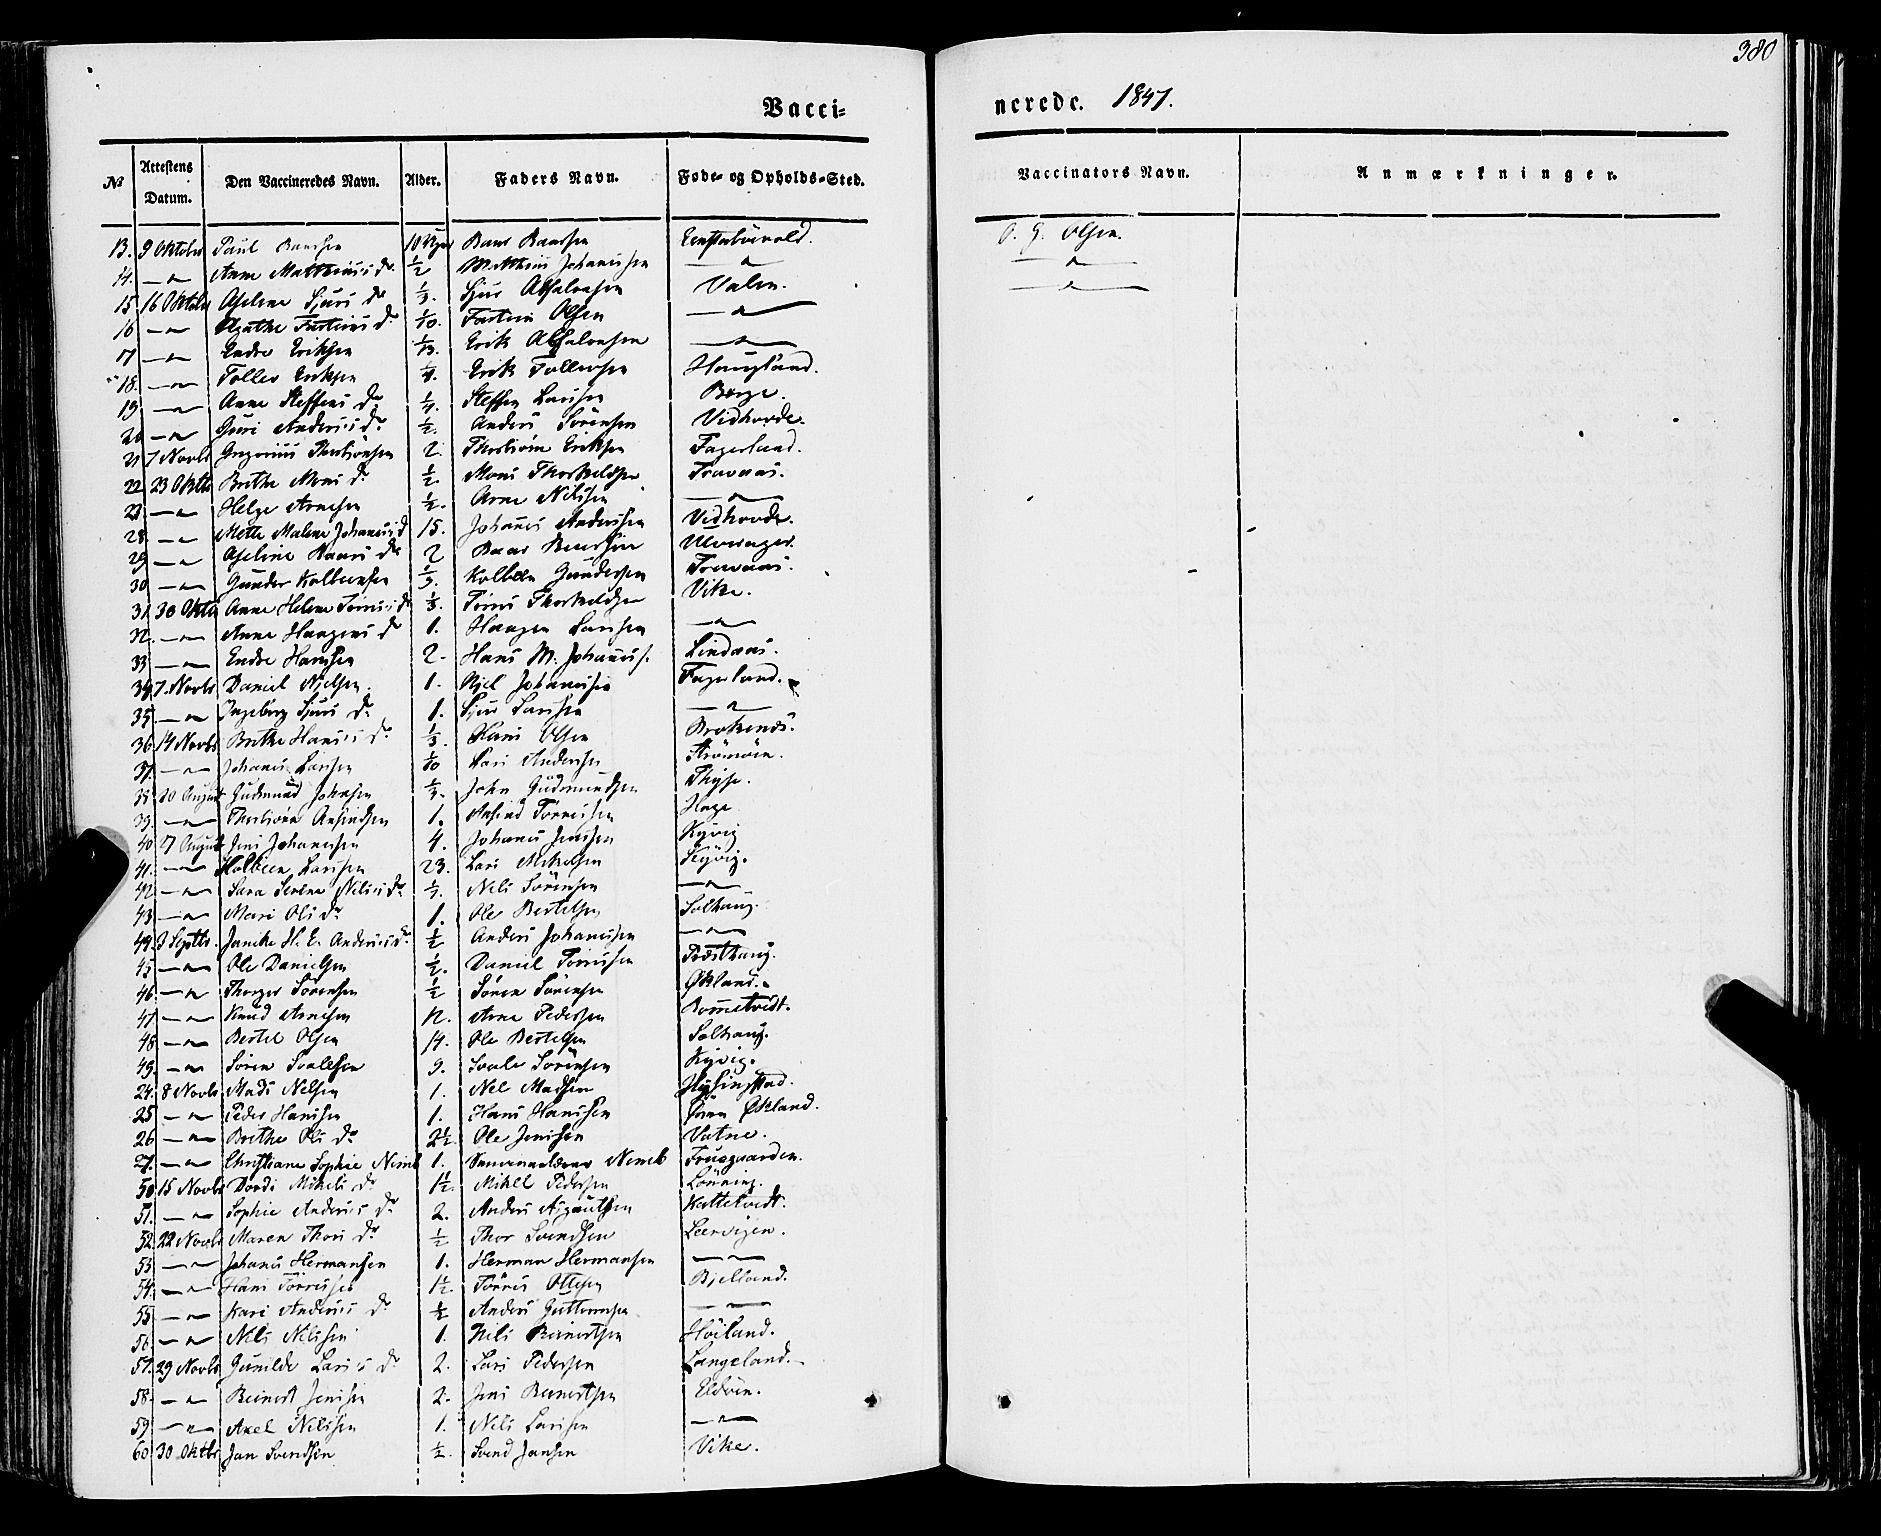 380
Vacci- nerede. 1847.
No | Attestens Datum. | Den Vaccineredes Navn. | Alder. | Faders Navn. | Føde- og Opholds-Sted. | Vaccinators Navn. | Anmærkninger.
13. 9 Oktober Paul Baarsen 10 Uger Baar Baarsen O. G. Olsen.
14. — " — Anne Matthiis Dr. ½ Matthiis Johannissen — " — — " —
15 16 Oktober Aselene Sjurs Dr ⅓. Sjur Absalonsen Valen. — " —
16 — " — Agathe Fasteins Dr 1/10. Fastein Olsen — " —
17 — " — Endre Eriksen Erik Absalonsen — " —
18. — " — Tollev Eriksen ¼. Erik Tollevsen Haugland.
19 — " — Anne Steffens Dr ¼. Steffen Larsen Børge.
20 — " — Guri Anders Dr ½. Anders Sørensen Vidhovde.
21 7 Novbr Gregorius Thorbiønsen 2. Thorbiørn Eriksen Fagerland.
22 23 Oktbr Brithe Mons Dr ½. Mons Thorkeldsen Travaas.
23. — " — Helge Arnesen ½. Arne Nilssen — " —
28. — " — Mette Malene Johannis D 15. Johannis Anderssen Vidhovde.
29 — " — Aseline Baars Dr 2 Baar Baarsen Ulverager.
30 — " — Gunder Kolbeensen ⅓. Kolbeen Gundersen Travaas.
31. 30 Oktbr Anne Helene Tørris Dr ⅓. Tørris Thorkeldsen Vike.
32. — " — Anne Haagens Dr 1. Haagen Larsen — " —
33 — " — Endre Hansen 2. Hans M. Johannis. Lindaas.
34 7. Novbr Daniel Njelsen. 1. Njel Johannisen Fagerland.
35. — " — Ingeborg Sjurs Dr 1. Sjur Larsen — " —
36 14 Novbr Brithe Hans Dr ⅓. Hans Olsen Brokenæs.
37. — " — Johannis Larsen 1/10 Lars Andersen Strømøen.
38 20 August Gudmund Johnsen John Gudmundsen
39. — " — Thorbiørn Aasindsen 1. Aasind Tørrissen Hage
40 17 August Jens Johannesen 4. Johannes Jenssen Kyvig
41. — " — Kolbeen Larssen 23. Lars Mikelsen Kyvig.
42 — " — Sara Serine Nils Dr Nils Sørensen — " —
43 — " — Mari Ols Dr 1. Ole Bertelsen Solhaug.
44 3 Septbr. Janike H. E. Anders Dr ½ Anders Johannesen — " —
45 — " — Ole Danielsen ½. Daniel Tørrissen Præsthaug.
46 — " — Thorger Sørensen ½ Søren Sørensen Økland.
47 — " — Knud Arnesen 12. Arne Pedersen Rommetvedt.
48 — " — Bertel Olsen 14. Ole Bertelsen Solhaug.
49. — " — Søren Svalesen 9. Svale Sørensen Kyvig.
24. 8 Novbr Mads Nelsen 1. Nel Madsen Hysingstad.
25 — " — Peder Hanssen 1. Hans Hanssen Økland.
26 — " — Brithe Ols Dr 2½. Ole Jenssen Vatne.
27. — " — Christiane Sophie Nimb 1. Nimb Frugaarden.
50 15 Novbr Dordi Mikels Dr 1½. Mikel Pedersen Lønning.
51. — " — Sophie Anders Dr 2. Anders Asgautsen Kattetvedt.
52. 22 Novbr Maren Thors Dr ½ Thor Svendsen Leervigen.
53 — " — Johanis Hermansen 1. Herman Hermansen — " —
54. — " — Hans Tørrissen 1½ Tørris Ottesen Bjelland.
55 — " — Kari Anders Dr ½ Anders Guttormsen — " —
56. — " — Nils Nilssen 1. Nils Beinertsen Høiland.
57. 29 Novbr Gunilde Lars Dr 2. Lars Pedersen Langeland.
58. — " — Beinert Jenssen 2. Jens Beinertsen Eldøen.
59 — " — Axel Nilssen 1. Nils Larssen — " —
60. 30 Oktbr Jan Svendsen ½. Svend Jansen Vike.